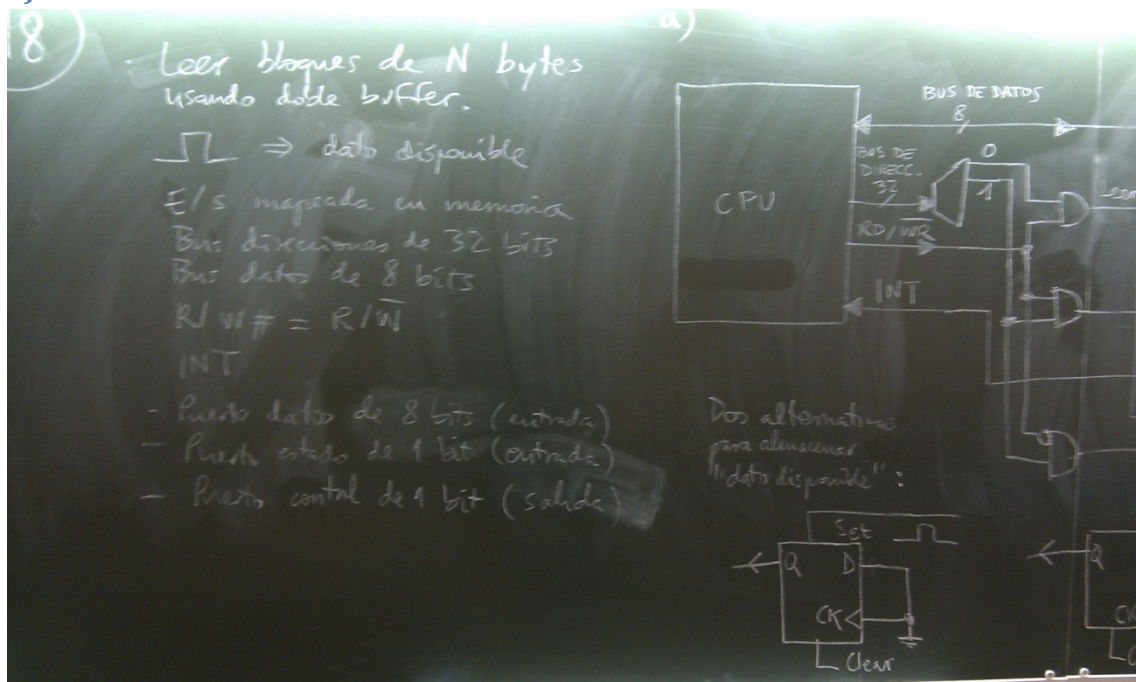 8
- Leer bloques de N bytes
usando doble buffer.
⇒ dato disponible
E/S mapeada en memoria
Bus direcciones de 32 bits
Bus datos de 8 bits
R/W# = R/W̅
INT
- Puerto datos de 8 bits (entrada)
- Puerto estado de 1 bit (entrada)
- Puerto control de 1 bit (salida)
a)
BUS DE DATOS
8
BUS DE
DIRECC.
32
0
1
CPU
RD/W̅R̅
INT
Dos alternativas
para almacenar
"dato disponible":
Set
Q D
CK
Clear
Q
CK